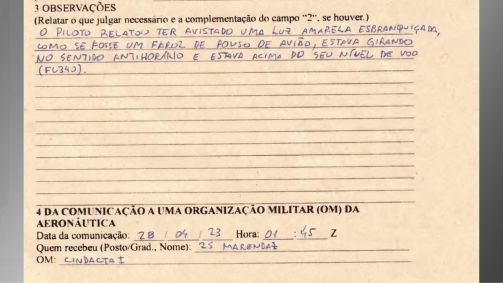 3 OBSERVAÇÕES
(Relatar o que julgar necessário e a complementação do campo "2", se houver.)
O PILOTO RELATOU TER AVISTADO UMA LUZ AMARELA ESBRANQUIÇADA,
COMO SE FOSSE UM FAROL DE POUSO DE AVIÃO, ESTAVA GIRANDO
NO SENTIDO ANTIHORÁRIO E ESTAVA ACIMA DO SEU NÍVEL DE VOO
(FL340).
4 DA COMUNICAÇÃO A UMA ORGANIZAÇÃO MILITAR (OM) DA
AERONÁUTICA
Data da comunicação: 28 / 04 / 23 Hora: 01 : 45 Z
Quem recebeu (Posto/Grad., Nome): 2S MARENDAZ
OM: CINDACTA I